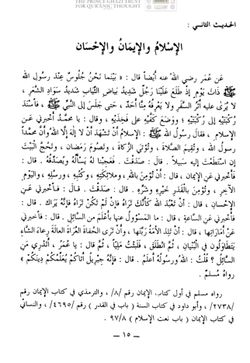 THE PRINCE GHAZI TRUST
FOR QUR'ANIC THOUGHT
الحديث الثاني :
الإسْلامُ والإيمَانُ والإحْسَان
عَنْ عُمَرَ رضي اللهُ عنه أيضاً قال : « بَيْنَما نَحْنُ جُلُوسٌ عِنْدَ رسولِ الله
ﷺ ذاتَ يَوْمٍ إذْ طَلَعَ عَلَيْنَا رَجُلٌ شَدِيدُ بَيَاضِ الثِّيَابِ شَدِيدُ سَوَادِ الشَّعَرِ ،
لا يُرَى عليه أَثَرُ السَّفَرِ ولا يَعْرِفُهُ مِنَّا أَحَدٌ ، حتى جَلَسَ إلى النَّبِيِّ ﷺ ، فأَسْنَدَ
رُكْبَتَيْهِ إلى رُكْبَتَيْهِ ، ووَضَعَ كَفَّيْهِ على فَخِذَيْهِ ، وقال : يا مُحمَّدُ أَخْبِرْني عن
الإسْلامِ . فقال رسولُ الله ﷺ : الإسْلامُ أنْ تَشْهَدَ أنْ لا إلهَ إلَّا اللهُ وأنَّ محمداً
رسولُ اللهِ ، وتُقِيمَ الصَّلاةَ ، وتُؤْتيَ الزَّكاةَ ، وتَصُومَ رَمَضَانَ ، وتَحُجَّ الْبَيْتَ
إن اسْتَطَعْتَ إليه سَبيلاً . قال : صَدَقْتَ . فَعَجِبْنا لهُ يَسْأَلُهُ ويُصَدِّقُهُ . قال :
فأخبرني عَنِ الإيمانِ . قال : أن تُؤْمِنَ بالله ، ومَلائِكَتِهِ ، وكُتُبِهِ ، ورُسُلِهِ ، واليَوْمِ
الآخِرِ ، وتُؤْمِنَ بالْقَدَرِ خَيْرِهِ وشَرِّهِ . قال : صَدَقْتَ . قال : فأخبرني عَنِ
الإحْسانِ . قال : أنْ تَعْبُدَ اللهَ كأَنَّكَ تَرَاهُ فإنْ لم تَكُنْ تَرَاهُ فإنَّهُ يَرَاكَ . قال :
فأخبرني عَنِ السَّاعةِ . قال : ما المسؤولُ عنها بأَعْلَمَ من السَّائِلِ . قال : فأخبرني
عَنْ أَمَارَاتِها . قال : أنْ تَلِدَ الأَمَةُ رَبَّتَها ، وأَنْ تَرَى الحُفَاةَ العُرَاةَ العَالَةَ رِعَاءَ الشَّاءِ
يَتَطَاوَلُونَ في الْبُنْيَانِ . ثُمَّ انْطَلَقَ ، فَلَبِثْتُ مَلِيًّا ، ثُمَّ قال : يا عُمَرُ ، أَتَدْرِي مَنِ
السَّائِلُ ؟ قُلْتُ : اللهُ ورسُولُهُ أَعْلَمُ . قال : فإنَّهُ جِبْرِيلُ أَتاكُمْ يُعَلِّمُكُمْ دِينَكُمْ »
رواه مسلم .
رواه مسلم في أول كتاب الإيمان رقم /٨/ ، والترمذي في كتاب الإيمان رقم
/٢٧٣٨/ ، وأبو داود في كتاب السنة ( باب في القدر ) رقم /٤٦٩٥/ ، والنسائي
في كتاب الإيمان ( باب نعت الإسلام ) ٩٧/٨ .
— ١٥ —